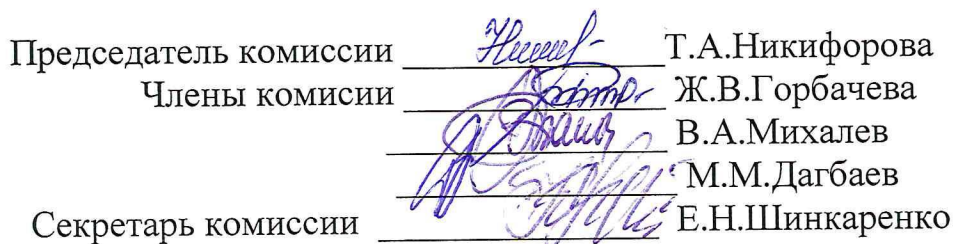 Председатель комиссии Т.А.Никифорова
Члены комисии Ж.В.Горбачева
В.А.Михалев
М.М.Дагбаев
Секретарь комиссии Е.Н.Шинкаренко